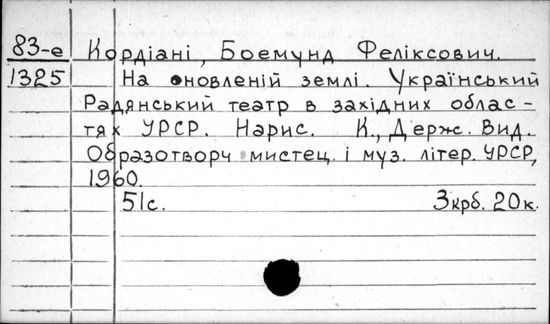 83-е Кордіані, Боемунд Феліксович.
1325 На оновленій землі. Український
Радянський театр в західних облас-
тях УРСР. Нарис. К., Держ. Вид.
Образотворч мистец. і муз. літер. УРСР,
1960.
51с. 3крб. 20к.